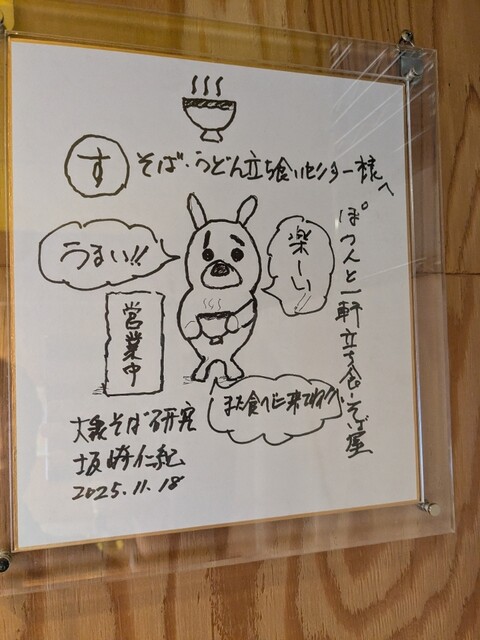 す そば・うどん立ち食いセンター様へ
ぽつんと一軒立ち食いそば屋
うまい!!
楽ーい!!
営業中
また食べに来
大衆そば研究
坂崎仁紀
2025.11.18